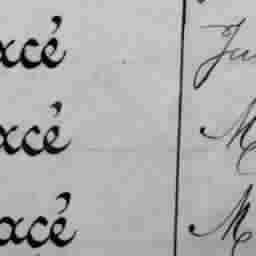 xcé Ju
xcé M
xcé M